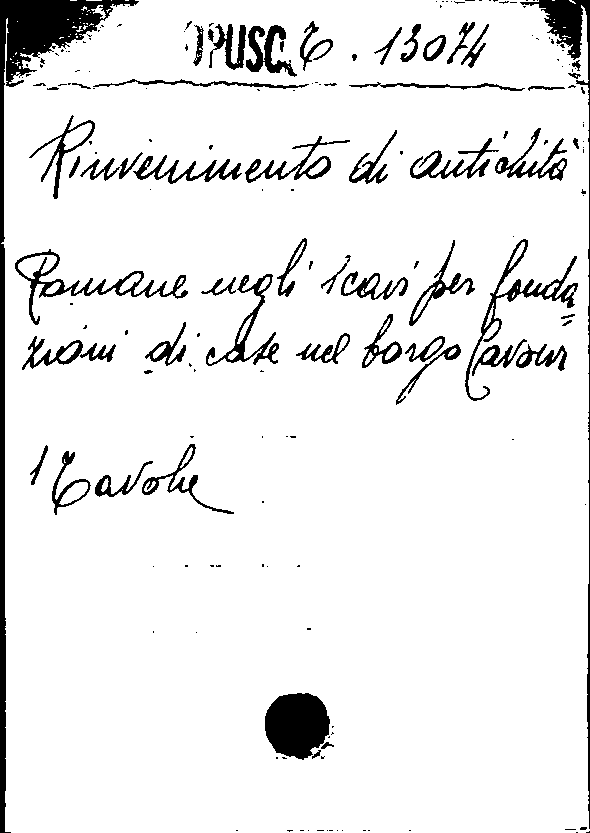 OPUSC. T. 13074
Rinvenimento di antichità
Romane negli scavi per fonda=
zioni di case nel borgo Cavour
1 Tavole